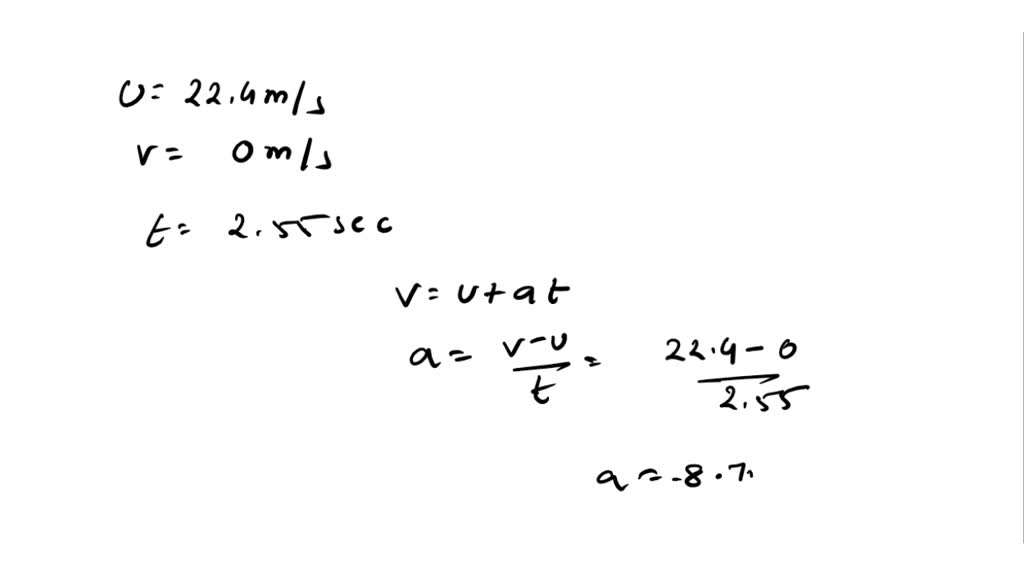 u= 22.4 m/s
v= 0 m/s
t= 2.55 sec
v= u+at
a= v-u/t = 22.4-0/2.55
a=-8.7